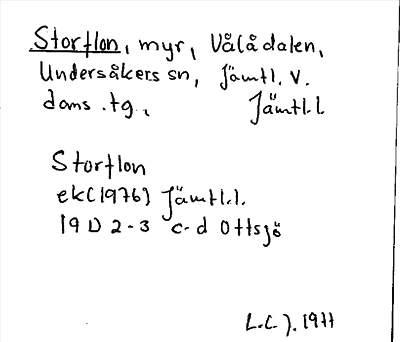 Storflon, myr, Vålådalen,
Undersåkers sn, Jämtl. v.
doms .tg., Jämtl.l
Storflon
ek(1976) Jämtl.l.
19 D 2-3 c-d Ottsjö
L.C.J. 1977